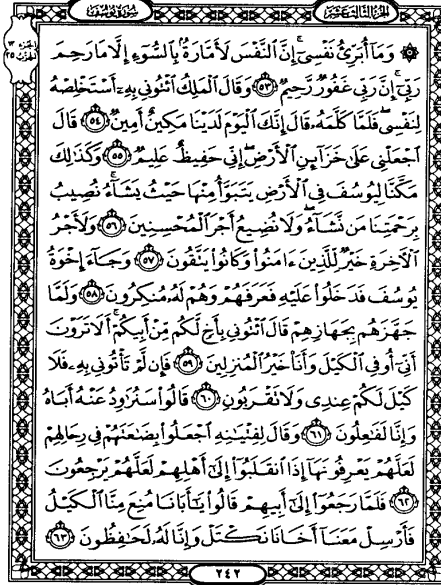 الجزء الثالث عشر
سورة يوسف
۞ وَمَآ أُبَرِّئُ نَفْسِىٓ إِنَّ ٱلنَّفْسَ لَأَمَّارَةٌۢ بِٱلسُّوٓءِ إِلَّا مَا رَحِمَ
رَبِّىٓ إِنَّ رَبِّى غَفُورٌ رَّحِيمٌ ٥٣ وَقَالَ ٱلْمَلِكُ ٱئْتُونِى بِهِۦٓ أَسْتَخْلِصْهُ
لِنَفْسِى فَلَمَّا كَلَّمَهُۥ قَالَ إِنَّكَ ٱلْيَوْمَ لَدَيْنَا مَكِينٌ أَمِينٌ ٥٤ قَالَ
ٱجْعَلْنِى عَلَىٰ خَزَآئِنِ ٱلْأَرْضِ إِنِّى حَفِيظٌ عَلِيمٌ ٥٥ وَكَذَٰلِكَ
مَكَّنَّا لِيُوسُفَ فِى ٱلْأَرْضِ يَتَبَوَّأُ مِنْهَا حَيْثُ يَشَآءُ نُصِيبُ
بِرَحْمَتِنَا مَن نَّشَآءُ وَلَا نُضِيعُ أَجْرَ ٱلْمُحْسِنِينَ ٥٦ وَلَأَجْرُ
ٱلْءَاخِرَةِ خَيْرٌ لِّلَّذِينَ ءَامَنُوا۟ وَكَانُوا۟ يَتَّقُونَ ٥٧ وَجَآءَ إِخْوَةُ
يُوسُفَ فَدَخَلُوا۟ عَلَيْهِ فَعَرَفَهُمْ وَهُمْ لَهُۥ مُنكِرُونَ ٥٨ وَلَمَّا
جَهَّزَهُم بِجَهَازِهِمْ قَالَ ٱئْتُونِى بِأَخٍ لَّكُم مِّنْ أَبِيكُمْ أَلَا تَرَوْنَ
أَنِّىٓ أُوفِى ٱلْكَيْلَ وَأَنَا۠ خَيْرُ ٱلْمُنزِلِينَ ٥٩ فَإِن لَّمْ تَأْتُونِى بِهِۦ فَلَا
كَيْلَ لَكُمْ عِندِى وَلَا تَقْرَبُونِ ٦٠ قَالُوا۟ سَنُرَٰوِدُ عَنْهُ أَبَاهُ
وَإِنَّا لَفَٰعِلُونَ ٦١ وَقَالَ لِفِتْيَٰنِهِ ٱجْعَلُوا۟ بِضَٰعَتَهُمْ فِى رِحَالِهِمْ
لَعَلَّهُمْ يَعْرِفُونَهَآ إِذَا ٱنقَلَبُوٓا۟ إِلَىٰٓ أَهْلِهِمْ لَعَلَّهُمْ يَرْجِعُونَ
٦٢ فَلَمَّا رَجَعُوٓا۟ إِلَىٰٓ أَبِيهِمْ قَالُوا۟ يَٰٓأَبَانَا مُنِعَ مِنَّا ٱلْكَيْلُ
فَأَرْسِلْ مَعَنَآ أَخَانَا نَكْتَلْ وَإِنَّا لَهُۥ لَحَٰفِظُونَ ٦٣
٢٤٢